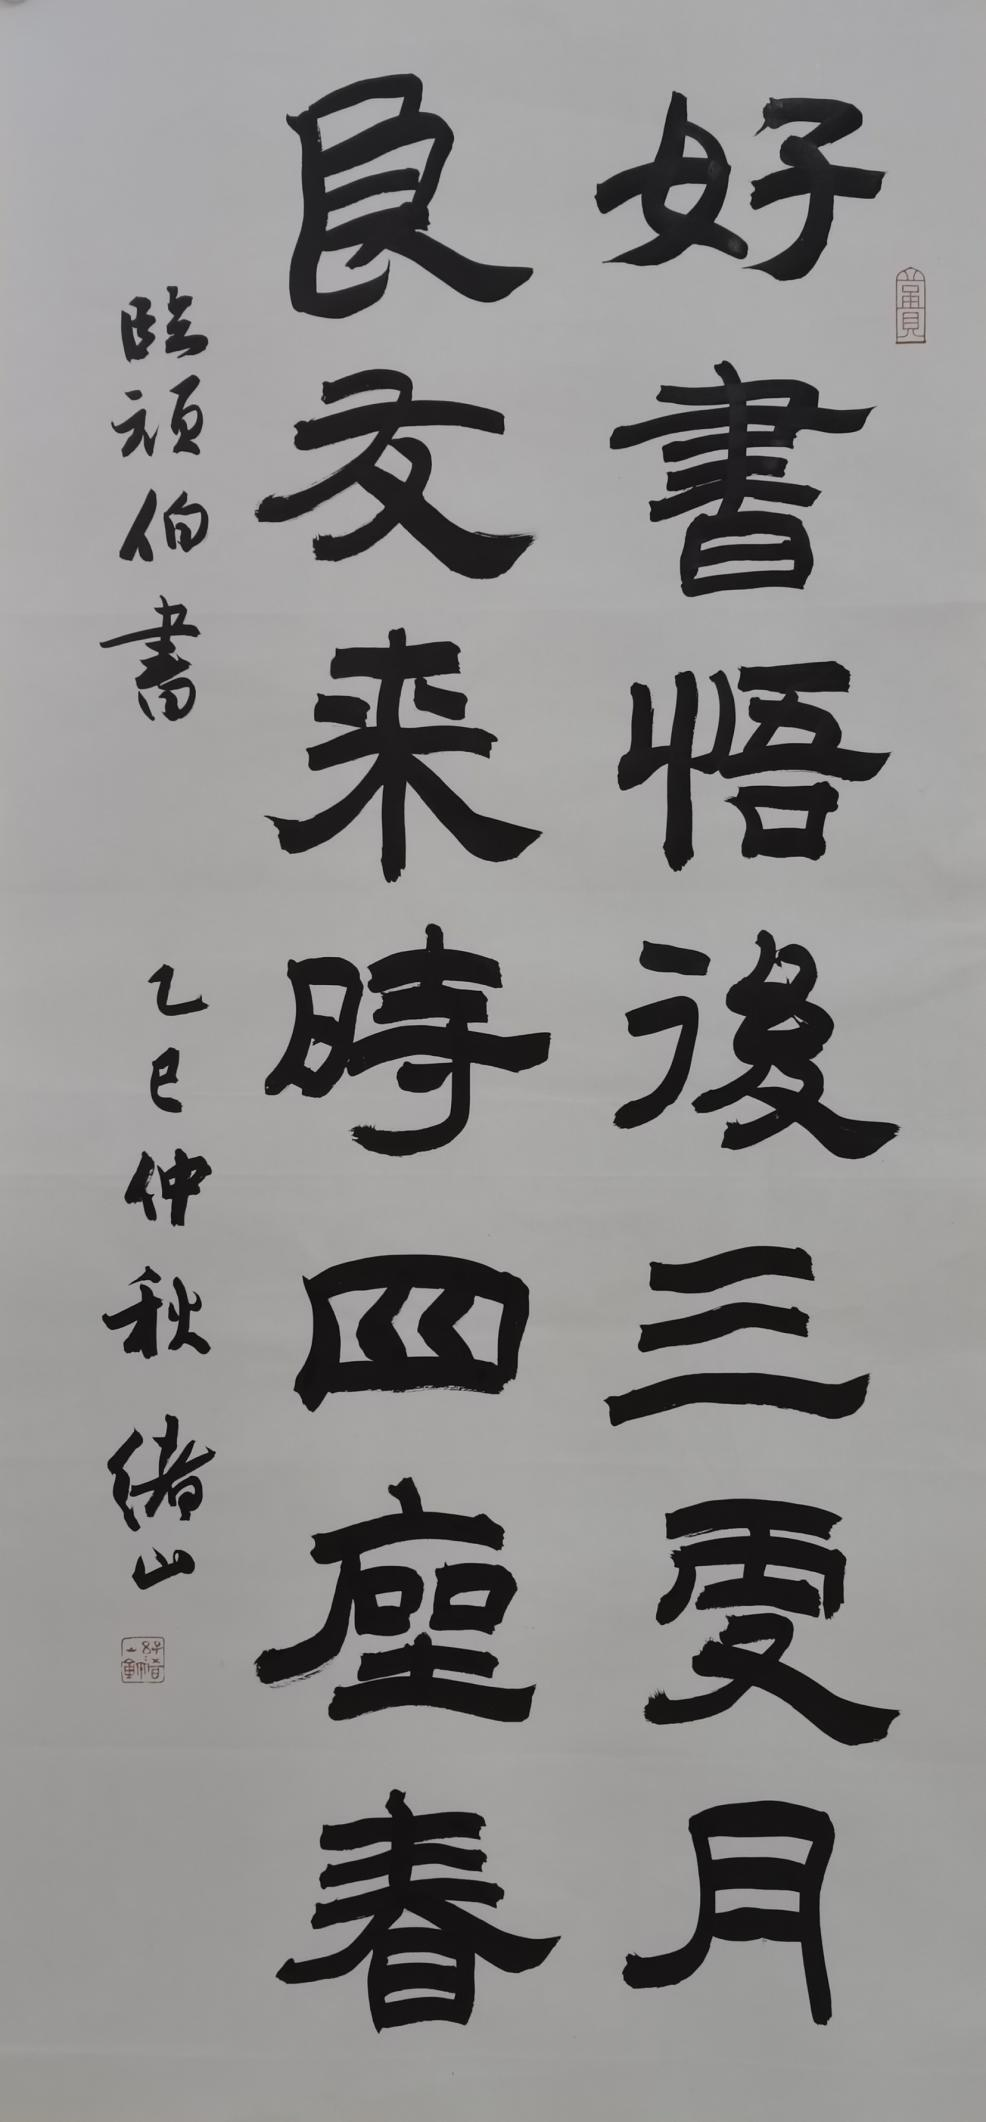 好書悟後三更月
良友来時四座春
臨頑伯書 乙巳仲秋 緒山